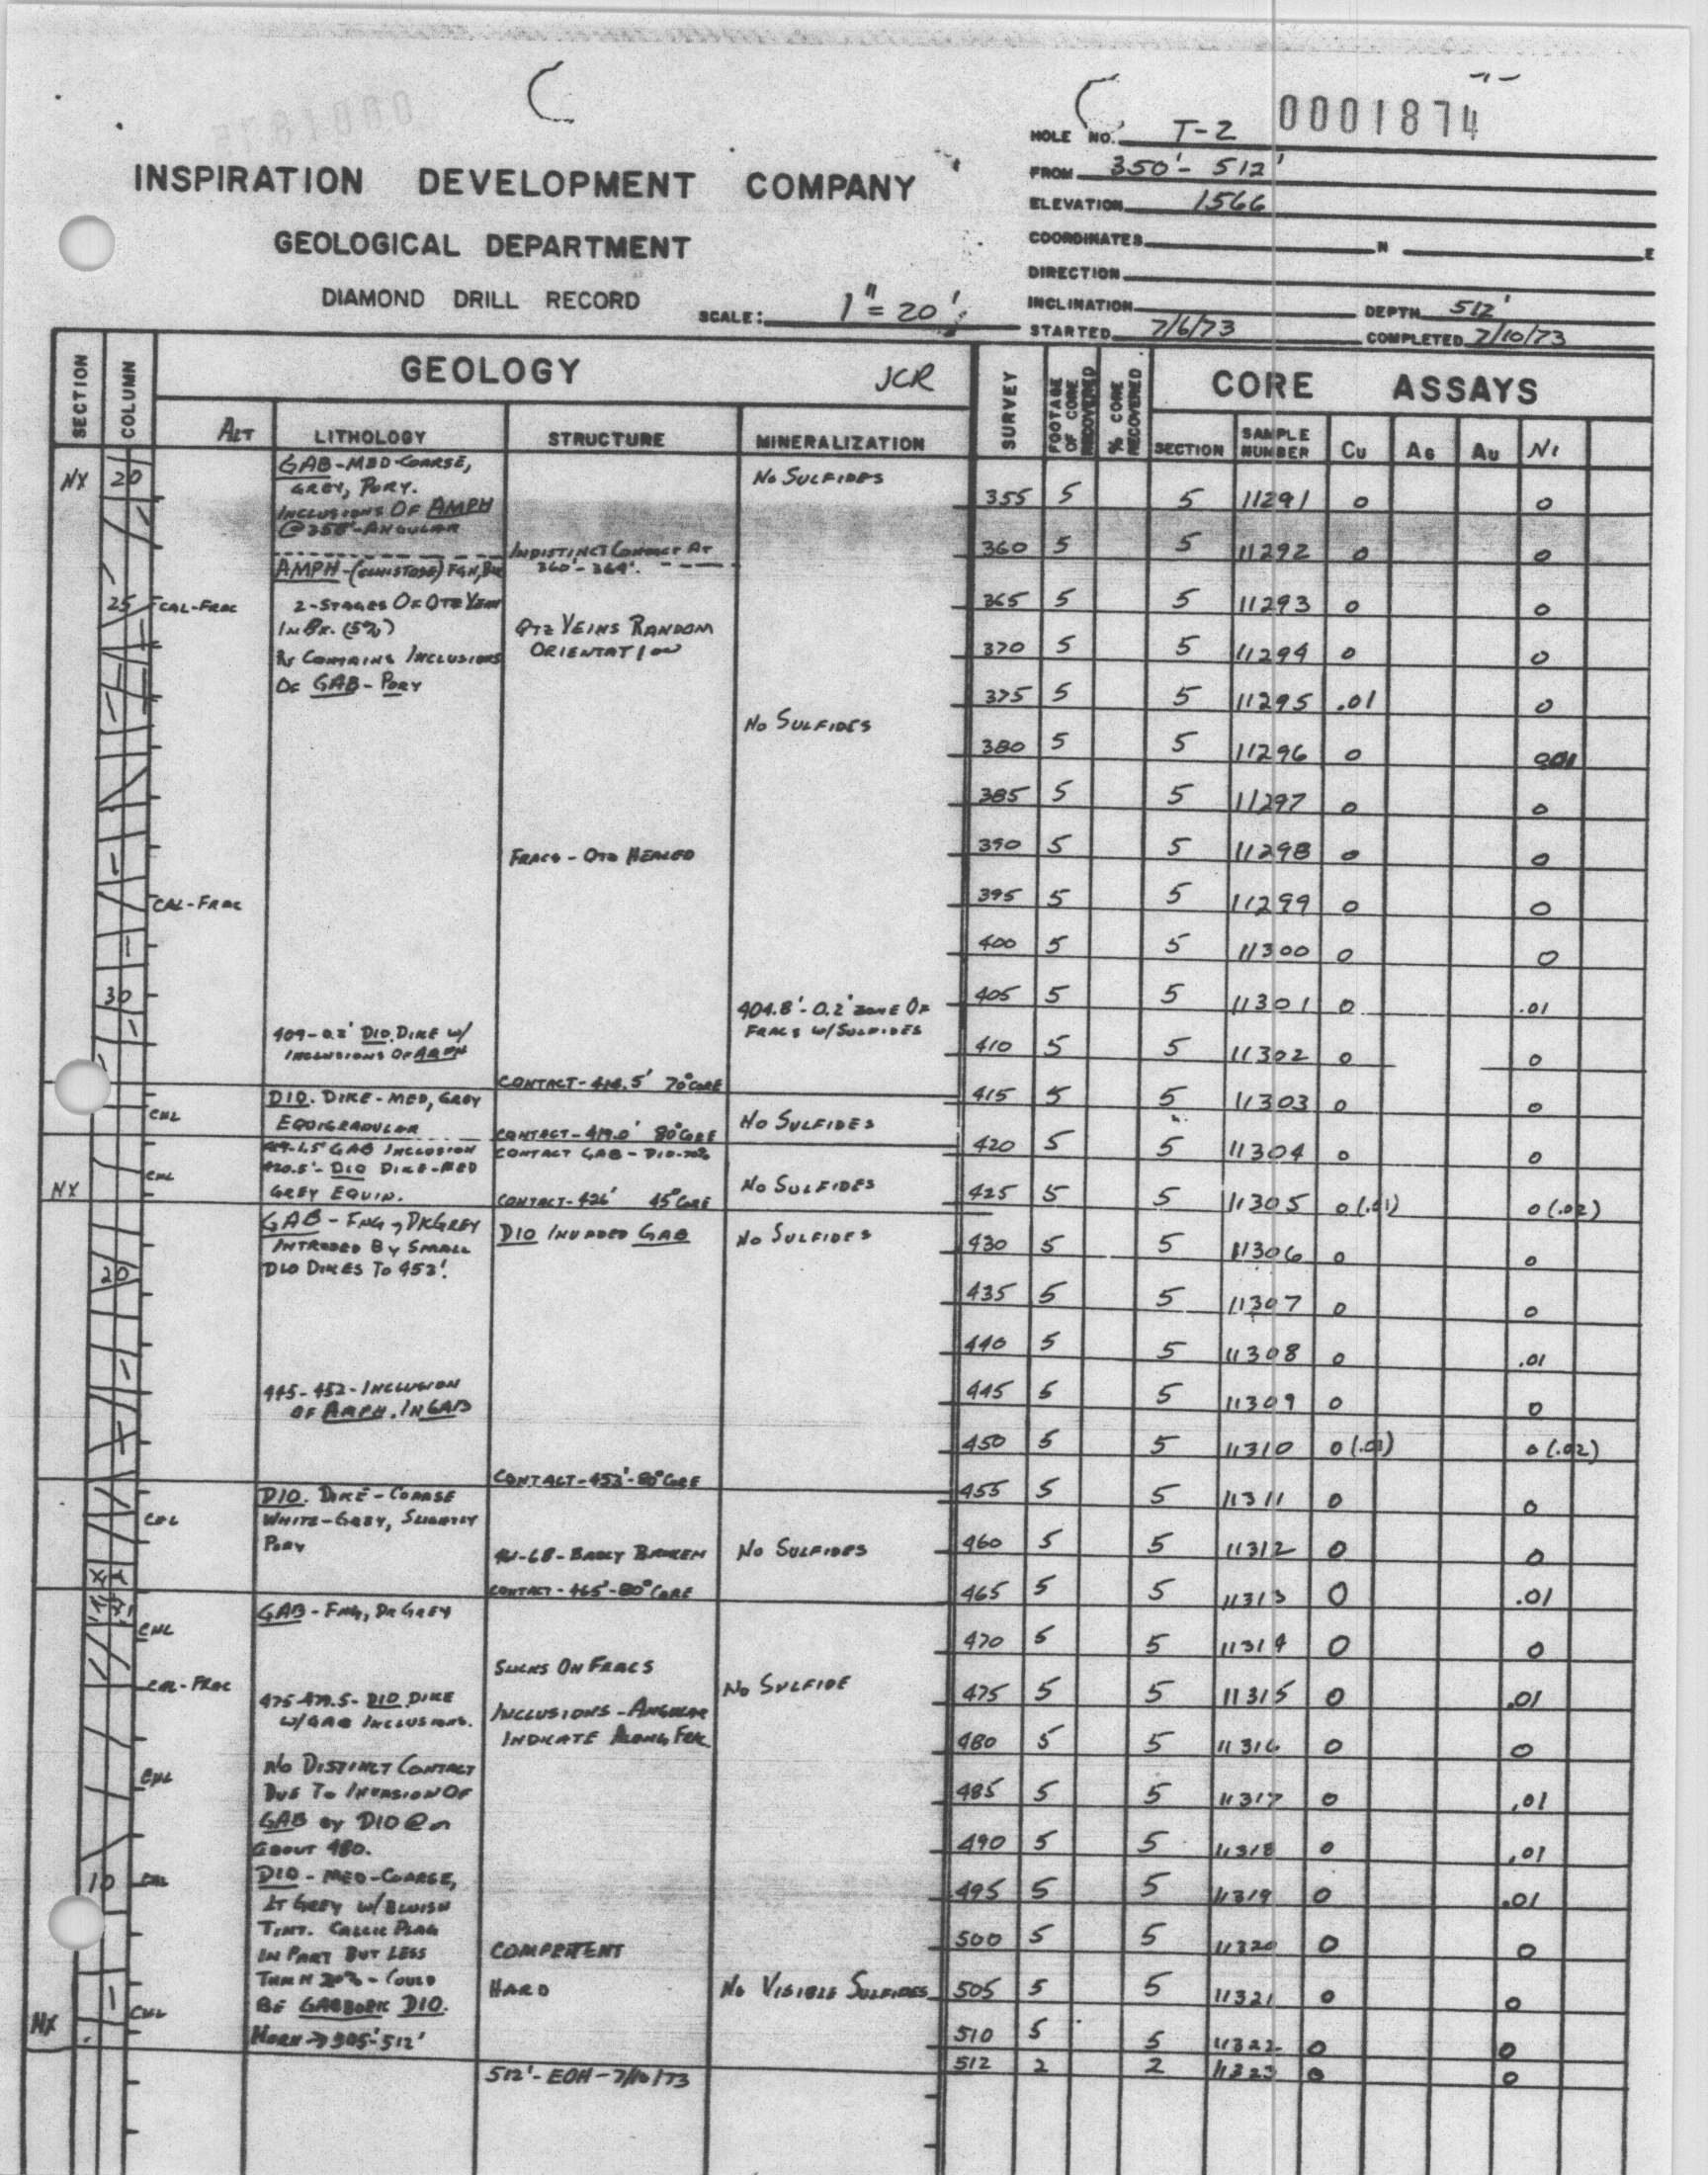 0001874
HOLE NO. T-2
FROM 350'- 512'
ELEVATION 1566
COORDINATES N E
DIRECTION
INCLINATION DEPTH 512'
STARTED 7/6/73 COMPLETED 7/10/73
INSPIRATION DEVELOPMENT COMPANY
GEOLOGICAL DEPARTMENT
DIAMOND DRILL RECORD SCALE: 1"=20'
SECTION COLUMN GEOLOGY JCR SURVEY FOOTAGE OF CORE RECOVERED % CORE RECOVERED CORE ASSAYS
ALT LITHOLOGY STRUCTURE MINERALIZATION SECTION SAMPLE NUMBER Cu AG Au Ni
NX 20
GAB-MED-COARSE,
GREY, PORY.
INCLUSIONS OF AMPH
@ 358'-ANGULAR
NO SULFIDES
355 5 5 11291 0 0
INDISTINCT CONTACT AT
360'-364'.
360 5 5 11292 0 0
AMPH-(SCHISTOSE) FGN,
25 CAL-FRAC
2-STAGES OF QTZ VEIN
IN BX. (5%)
RX CONTAINS INCLUSIONS
OF GAB-PORY
QTZ VEINS RANDOM
ORIENTATION
365 5 5 11293 0 0
370 5 5 11294 0 0
375 5 5 11295 .01 0
NO SULFIDES
380 5 5 11296 0 .01
385 5 5 11297 0 0
FRACS-QTZ HEALED
390 5 5 11298 0 0
CAL-FRAC
395 5 5 11299 0 0
400 5 5 11300 0 0
30
404.8'-0.2' ZONE OF
FRACS W/SULFIDES
405 5 5 11301 0 .01
409-0.2' DIO DIKE W/
INCLUSIONS OF AMPH
410 5 5 11302 0 0
CONTACT-414.5' 70° CORE
415 5 5 11303 0 0
CHL
DIO. DIKE-MED, GREY
EQUIGRANULAR
NO SULFIDES
CONTACT-419.0' 80° CORE
420 5 5 11304 0 0
CHL
419-1.5' GAB INCLUSION
420.5'-DIO DIKE-MED
GREY EQUIN.
CONTACT GAB-DIO-70°
NO SULFIDES
NX
CONTACT-426' 45° CORE
425 5 5 11305 0(.01) 0(.02)
GAB-FNG, DKGREY
INTRUDED BY SMALL
DIO DIKES TO 453'.
DIO INVADED GAB
NO SULFIDES
430 5 5 11306 0 0
20
435 5 5 11307 0 0
440 5 5 11308 0 .01
445-452-INCLUSION
OF AMPH. IN GAB
445 5 5 11309 0 0
450 5 5 11310 0(.01) 0(.02)
CONTACT-453'-80° CORE
455 5 5 11311 0 0
CHL
DIO. DIKE-COARSE
WHITE-GREY, SLIGHTLY
PORY
-68-BADLY BROKEN
NO SULFIDES
460 5 5 11312 0 0
CONTACT-465'-80° CORE
465 5 5 11313 0 .01
CHL
GAB-FNG, DK GREY
470 5 5 11314 0 0
CAL-FRAC
SLICKS ON FRACS
NO SULFIDE
475-479.5-DIO DIKE
W/GAB INCLUSIONS.
INCLUSIONS-ANGULAR
INDICATE ALONG FRAC
475 5 5 11315 0 .01
480 5 5 11316 0 0
CHL
NO DISTINCT CONTACT
DUE TO INVASION OF
GAB BY DIO @
ABOUT 480.
485 5 5 11317 0 .01
490 5 5 11318 0 .01
10
DIO-MED-COARSE,
LT GREY W/BLUISH
TINT. CALCIC PLAG
IN PART BUT LESS
THAN 20%-COULD
BE GABBORIC DIO.
495 5 5 11319 0 .01
COMPETENT
HARD
500 5 5 11320 0 0
CHL
NO VISIBLE SULFIDES
505 5 5 11321 0 0
NX
505'-512'
510 5 5 11322 0 0
512'-EOH-7/10/73
512 2 2 11323 0 0